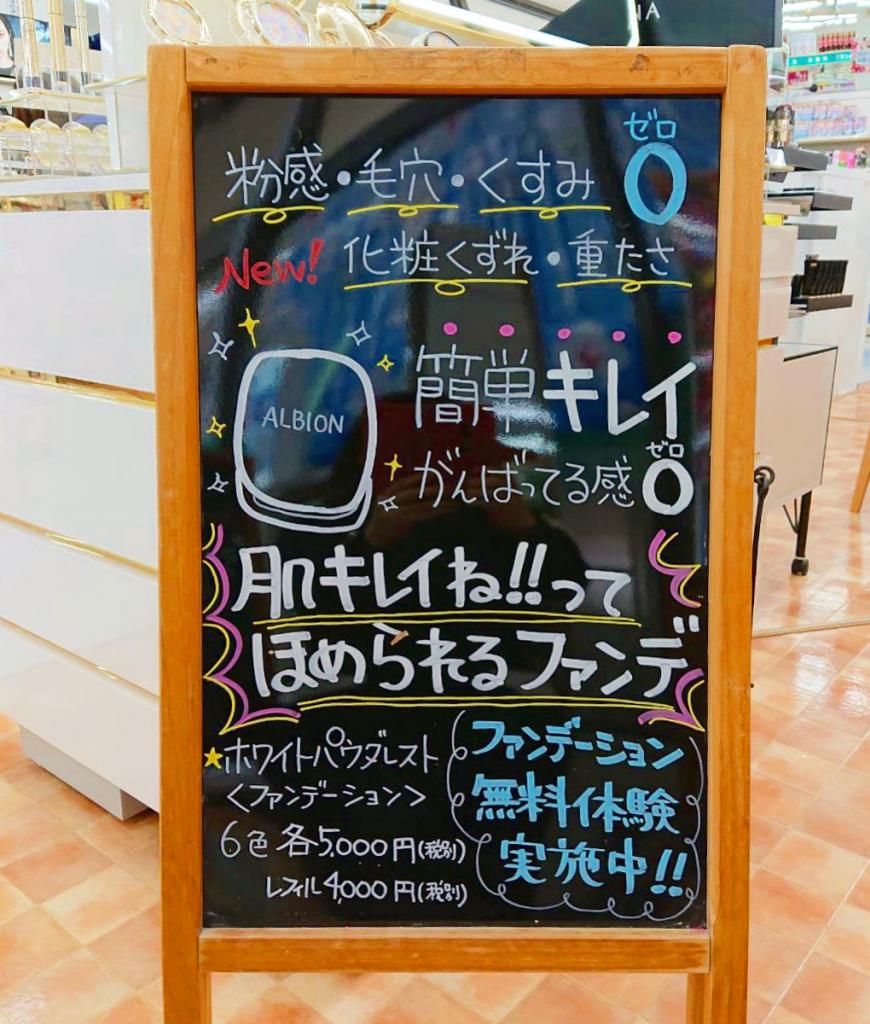 NA
ゼロ
粉感・毛穴・くすみ 0
New! 化粧くずれ・重たさ
ALBION
簡単キレイ
ゼロ
がんばってる感0
肌キレイね!!って
ほめられるファンデ
★ホワイトパウダレスト
<ファンデーション>
6色 各5,000円(税別)
レフィル4,000円(税別)
ファンデーション
無料体験
実施中!!